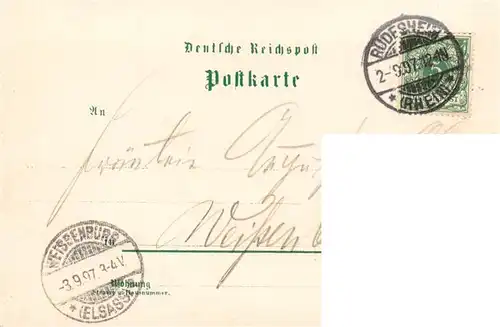 Deutsche Reichspost
Postkarte
RÜDESHEIM
2-9.97.12-1N.
* (RHEIN) *
An
Fräulein
Weißenb
in
WEISSENBURG
-3.9.97.3-4V.
* (ELSASS)
Wohnung